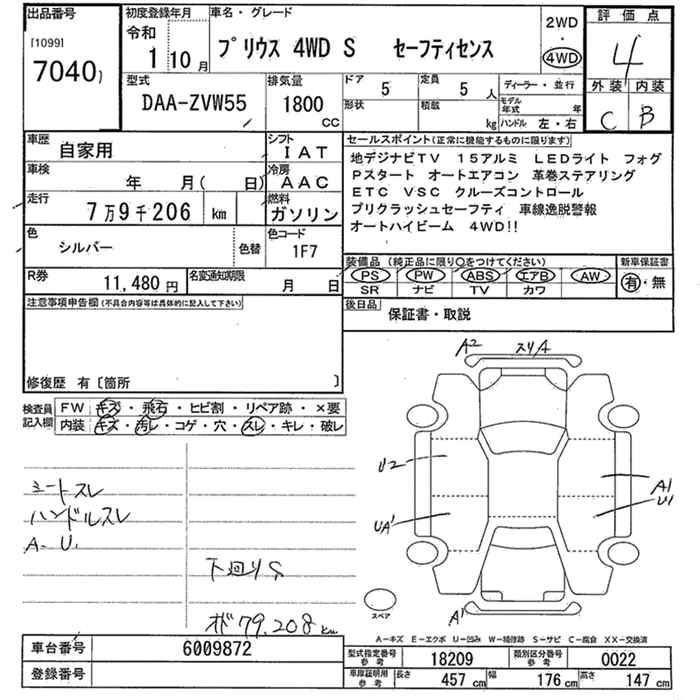 出品番号
[1099]
7040)
初度登録年月
令和
1 10 月
車名・グレード
プリウス 4WD S セーフティセンス
2WD
・
4WD
評価点
4
外装 内装
C B
型式
DAA-ZVW55
排気量
1800
CC
ドア 5
形状
定員 5 人
積載 kg
ディーラー・並行
モデル年式 年
ハンドル 左・右
車歴
自家用
シフト
IAT
車検
年 月( 日)
冷房
AAC
走行
7万9千206 km
燃料
ガソリン
色
シルバー
色替
色コード
1F7
R券
11,480 円
名変通知期限
月 日
セールスポイント(正常に機能するものに限ります)
地デジナビTV 15アルミ LEDライト フォグ
Pスタート オートエアコン 革巻ステアリング
ETC VSC クルーズコントロール
プリクラッシュセーフティ 車線逸脱警報
オートハイビーム 4WD!!
装備品(純正品に限り○をつけてください)
PS PW ABS エアB AW
SR ナビ TV カワ
新車保証書
有・無
後日品
保証書・取説
注意事項申告欄(不具合内容等は具体的に記入して下さい)
修復歴 有〔箇所 〕
検査員
記入欄
FW キズ・飛石・ヒビ割・リペア跡・×要
内装 キズ・汚レ・コゲ・穴・スレ・キレ・破レ
シートスレ
ハンドルスレ
A- U.
下回りS
オド79.208km
A2 スリA
U2
UA1
A1
U1
A1
スペア
A-キズ E-エクボ U-凹み W-補修跡 S-サビ C-腐食 XX-交換済
車台番号
6009872
登録番号
型式指定番号
参考
18209
類別区分番号
参考
0022
車庫証明用
参考
長さ 457 cm
幅 176 cm
高さ 147 cm